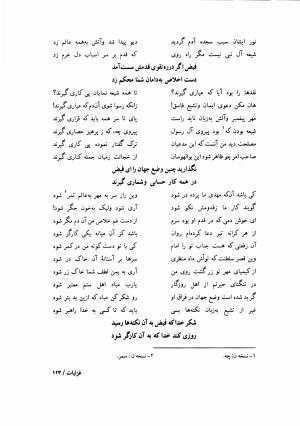 نور ایشان سبب سجده آدم گردید
دیو پیدا شد وآتش به‌همه عالم زد
شیعه آل نبی نیست مگر راه روی
که قدم بر سر اسباب دل خرم زد
فیض اگر در ره تقوی قدمش سست آمد
دست اخلاص به‌دامان شما محکم زد
نقدها را بود آیا که عیاری گیرند؟
تا همه شیعه نمایان پی کاری گیرند؟
هان مکن دعوی ایمان وتشیع فاسق!
مهر پیغمبر وآلش به‌زبان ناید راست
پای تا سر همه باید که قراری گیرند
شیعه بودن که ' بود پیروی آل رسول
پیروی چه، که ز پرهیز حصاری گیرند
مصلحت دید من آنست که این مدعیان
ترک گفتار نموده پی کاری گیرند
صاحب امر چو ظاهر شود این بوالهوسان
از خجالت زمیان جمله کناری گیرند
نگذارید چنین وضع جهان را ای فیض
در همه کار حسابی وشماری گیرند
کی باشد آنکه مهدی ما پرده در شود
وین راز سر به مهر به‌عالم ثمر ' شود
گویند کار ما زقدومش نکو شود
آری شود ولیک به‌خون جگر شود!
ای خوش دمی که در قدم او بود سرم
از دست غم خلاص من آن دم مگر شود
از هر کرانه تیر دعا کرده‌ام روان
باشد کز آن میانه یکی کارگر شود
وین قصر سلطنت که توأش ماه منظری
سرها بر آستانهٔ آن خاک در شود
از کیمیای مهر تو زر گشت روی من
آری به یمن لطف شما خاک زر شود
در تنگنای حیرتم از اهل روزگار
یارب مباد اهل ستم معتبر شود
بد گر شده است وضع جهان در فراق او
رو شکر کن مباد که ازین بد بتر شود
غیر از تشیع به‌زبان نکته‌ها بسی
باید که تا کسی به خدا راهبر شود
شکر خدا که فیض به آن نکته‌ها رسید
روزی کند خدا که به آن کارگر شود
۱- نسخه ن: چه.
۲- نسخه ن: سمر.
غزلیات / ۱۲۳